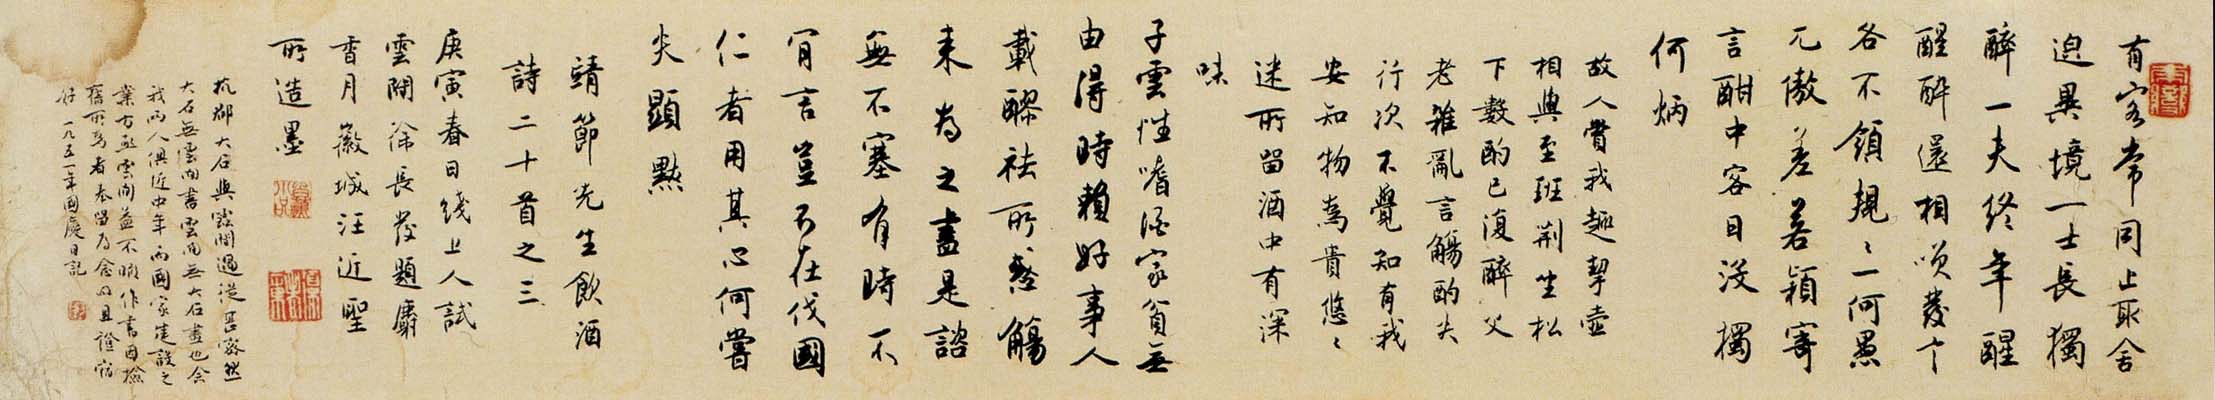 有客常同止取舍
迥異境一士長獨
醉一夫終年醒
醒醉還相笑發言
各不領規〻一何愚
兀傲差若穎寄
言酣中客日沒獨
何炳
故人賞我趣挈壺
相與至班荊坐松
下數酌已復醉父
老雜亂言觴酌失
行次不覺知有我
安知物為貴悠〻
迷所留酒中有深
味
子雲性嗜酒家貧無
由得時賴好事人
載醪袪所惑觴
來為之盡是諮
無不塞有時不
肯言豈不在伐國
仁者用其心何嘗
失顯默
靖節先生飲酒
詩二十首之三
庚寅春日綫上人試
雲閒徐長發題麝
香月徽城汪近聖
所造墨
杭郡大石與雲間過從甚密然
大石無雲間書雲間無大石畫也今
我兩人俱近中年而國家建設之
業方亟雲間益不暇作書因檢
舊所寫者奉留為念以且證宿
好一九五一年國慶日記